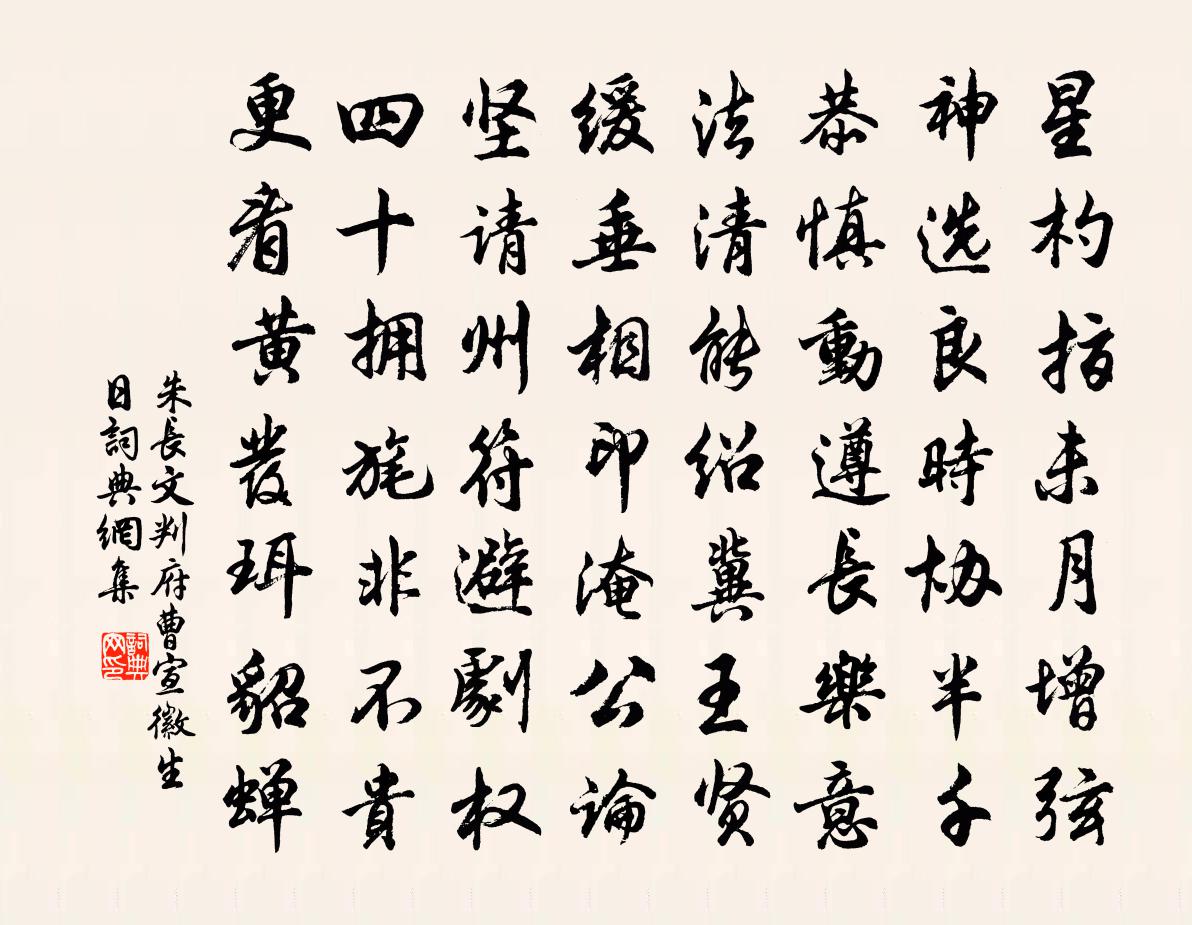 星杓指未月增弦
神选良時协半千
恭慎動遵長樂意
法清能绍冀王贤
缓垂相印淹公論
坚请州符避劇权
四十拥旄非不貴
更看黄發珥貂蝉
朱長文判府曹宣徽生
日詞典網集
詞典网印